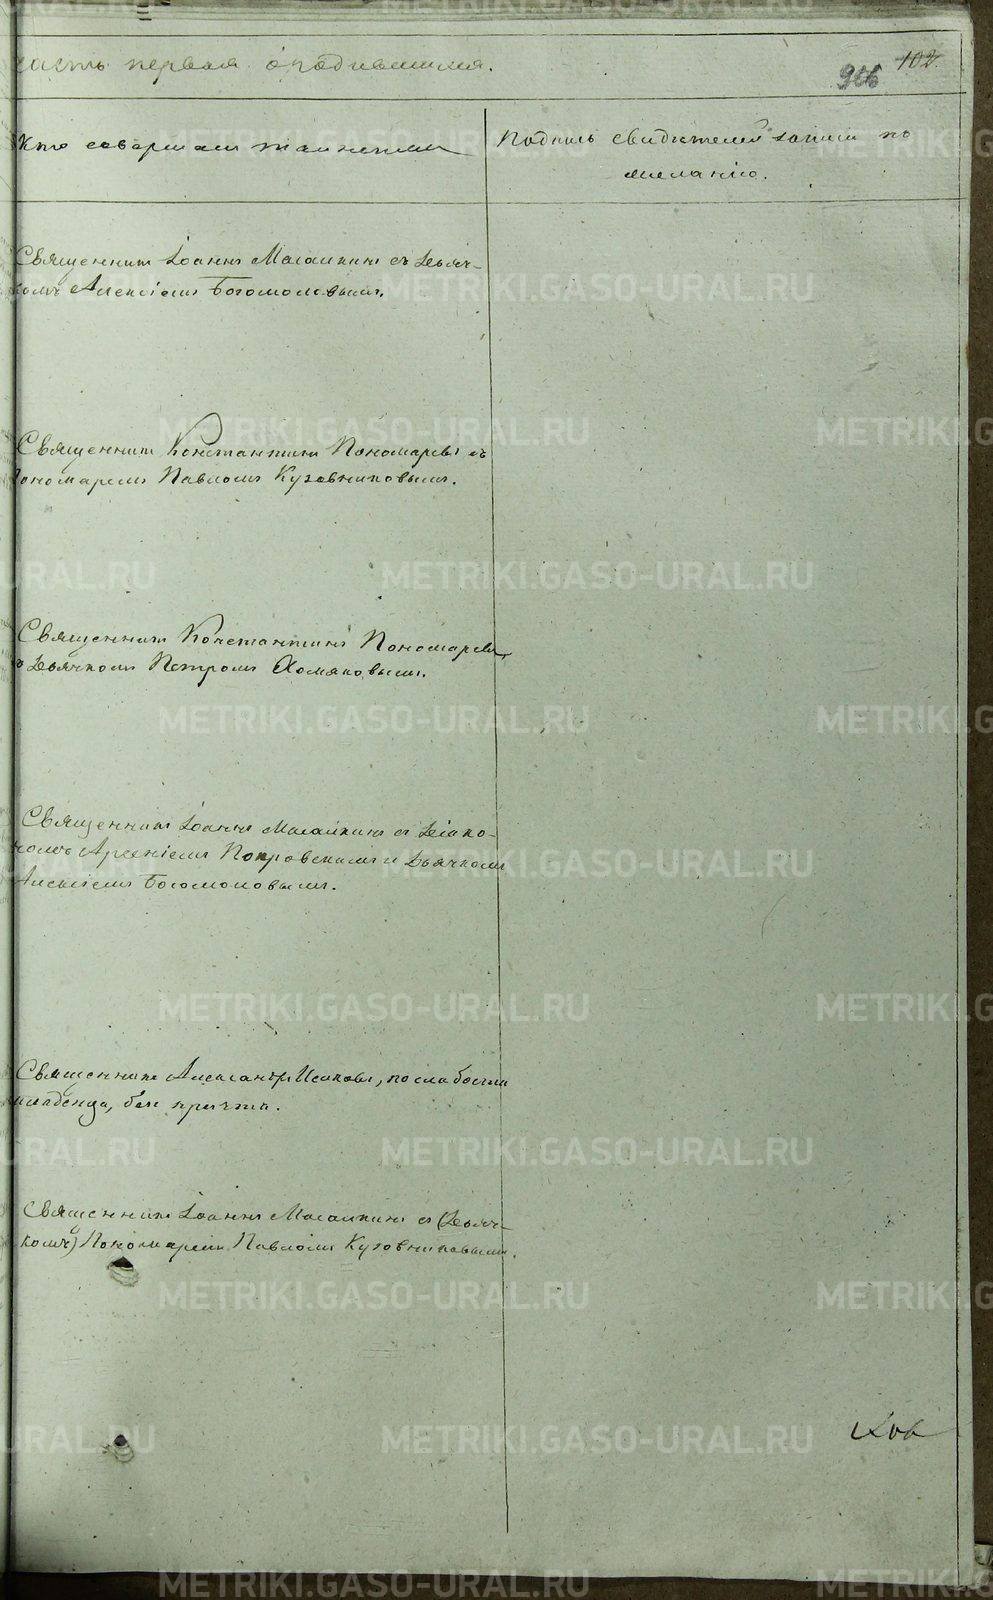 часть первая о родившихся.
102
Кто совершал таинство
Подпись свидетелей записи по
желанію.
Священникъ Іоаннъ Масалкинъ съ Дьяч-
комъ Алексіемъ Богомоловымъ.
Священникъ Константинъ Пономаревъ съ
пономаремъ Павломъ Кузовниковымъ.
Священникъ Константинъ Пономаревъ,
съ Дьячкомъ Петромъ Хомяковымъ.
Священникъ Іоаннъ Масалкинъ съ Діако-
номъ Арсеніемъ Покровскимъ и Дьячкомъ
Алексіемъ Богомоловымъ.
Священникъ Александръ Исаковъ, по слабости
младенца, безъ причта.
Священникъ Іоаннъ Масалкинъ съ (Дьяч-
комъ) Пономаремъ Павломъ Кузовниковымъ.
METRIKI.GASO-URAL.RU